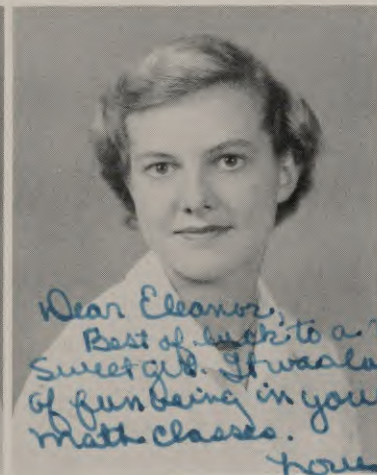 Dear Eleanor,
Best of luck to a
Sweet girl. It was a lo
of fun being in you
Math classes.